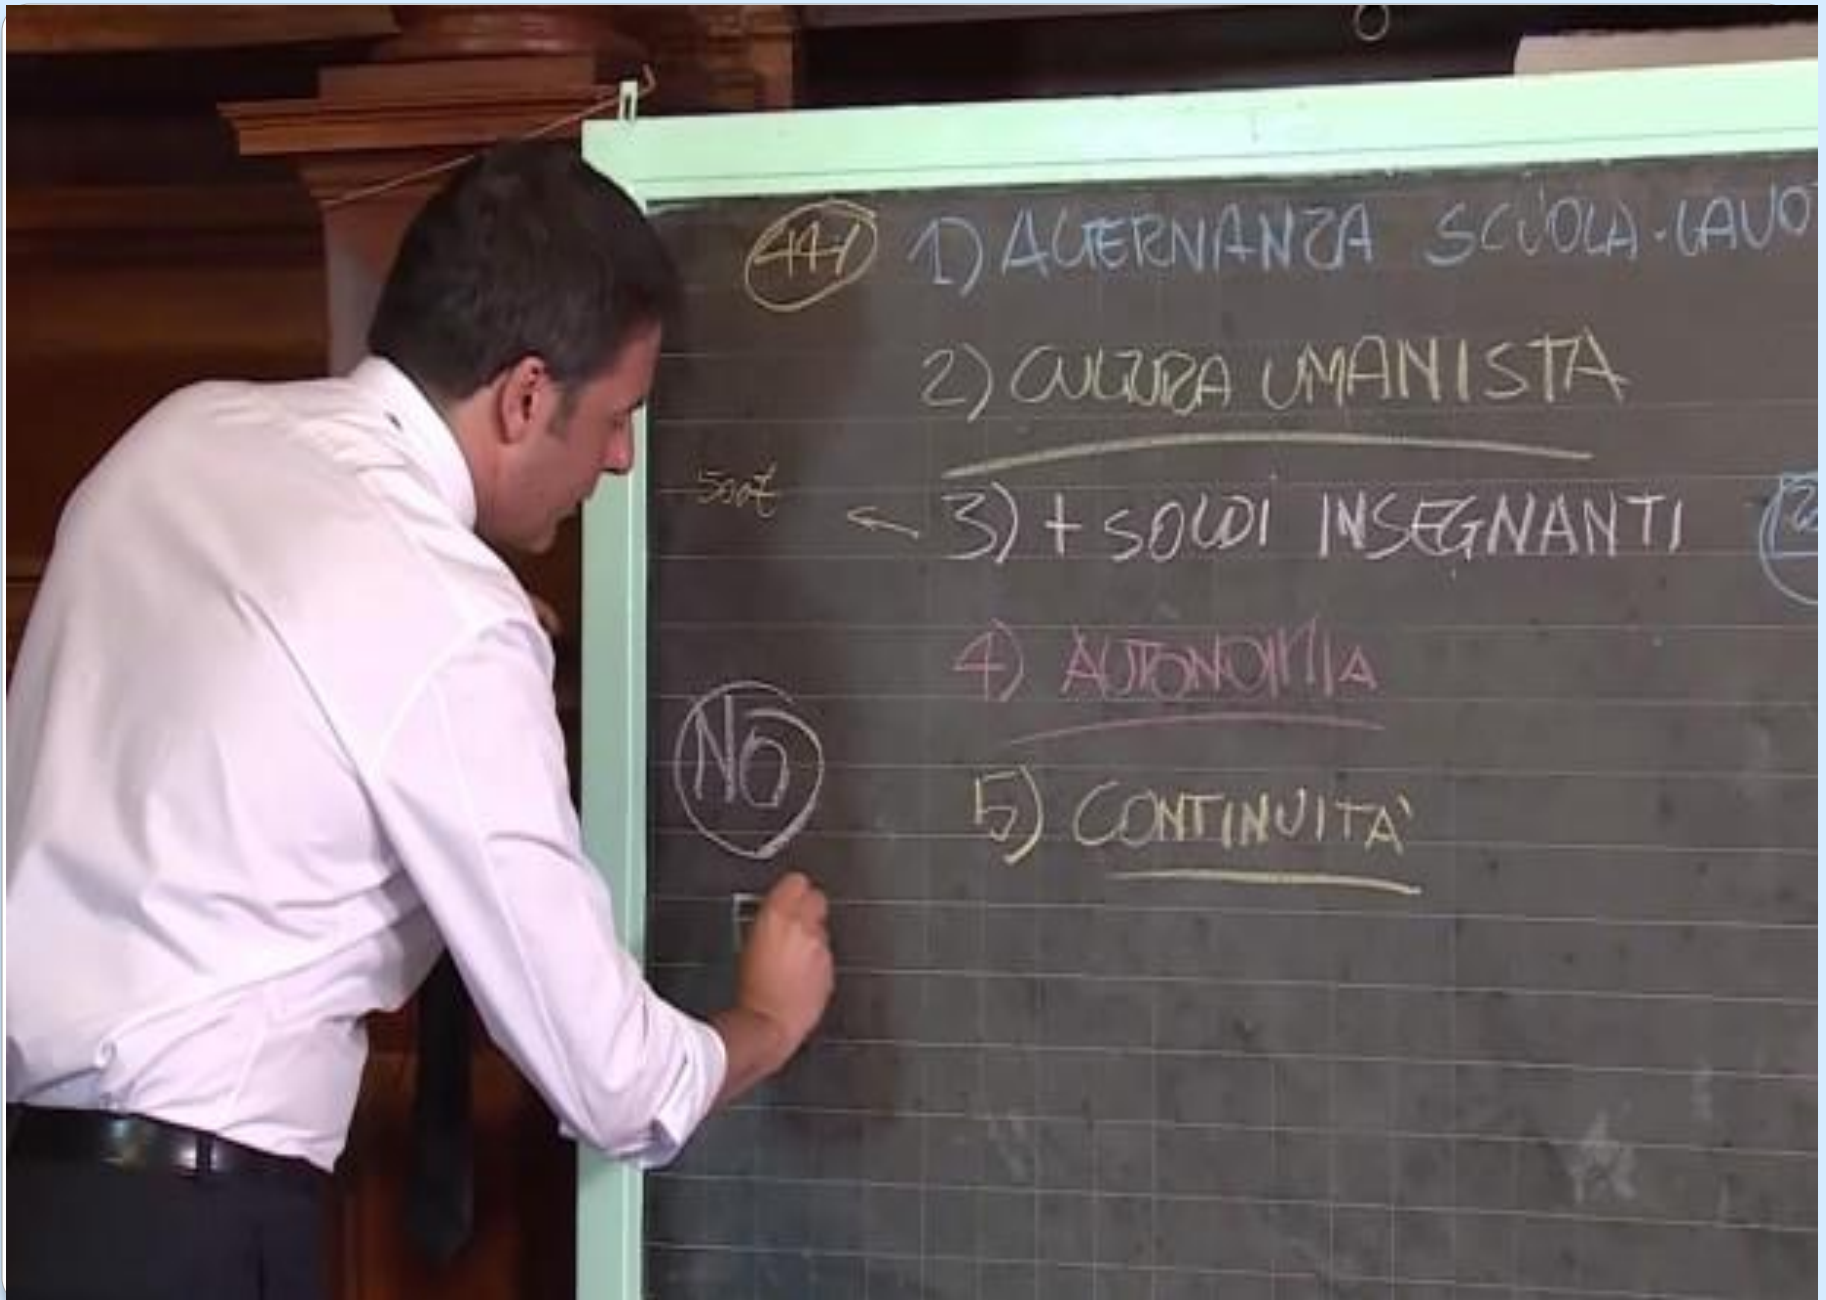 1) ALTERNANZA SCUOLA-LAVO
2) CULTURA UMANISTA
500€
3) + SOLDI INSEGNANTI
4) AUTONOMIA
NO
5) CONTINUITA'